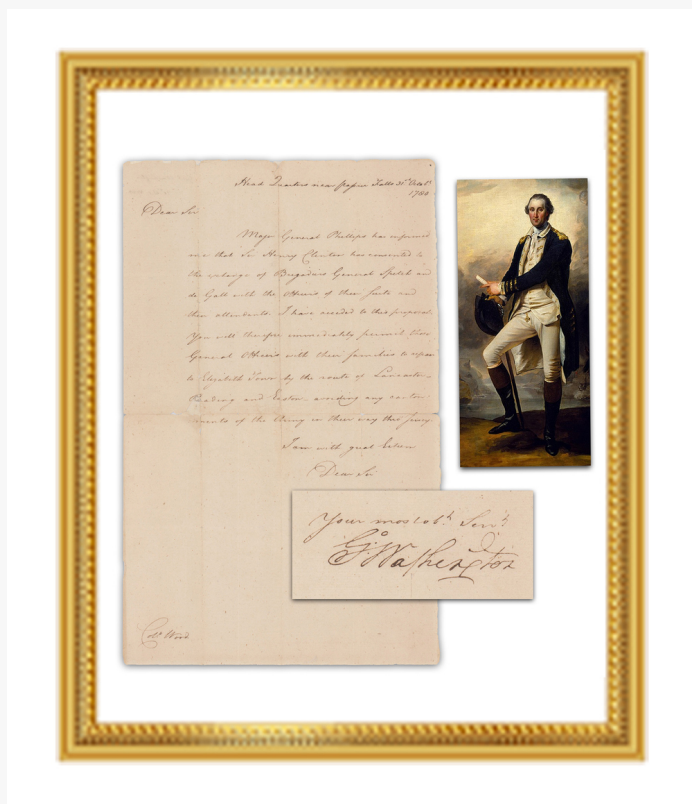 Head Quarters near Passaic Falls 31st Octobr
1780
Dear Sir
Major General Phillips has informed
me that Sir Henry Clinton has consented to
the exchange of Brigadiers General Specht and
de Gall with the Officers of their suits and
their attendants. I have acceded to this proposal
You will therefore immediately permit these
General Officers with their families to repair
to Elizabeth Town by the route of Lancaster
Reading and Easton avoiding any
of the Army in their way thro Jersey.
I am with great Esteem
Dear Sir
Your most obt. Servt.
Go: Washington
Colo. Wood